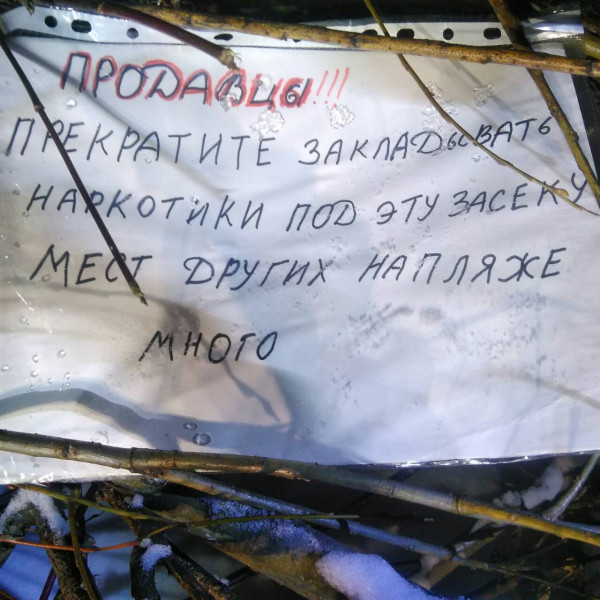 ПРОДАВЦЫ!!!
ПРЕКРАТИТЕ ЗАКЛАДЫВАТЬ
НАРКОТИКИ ПОД ЭТУ ЗАСЕКУ
МЕСТ ДРУГИХ НА ПЛЯЖЕ
МНОГО